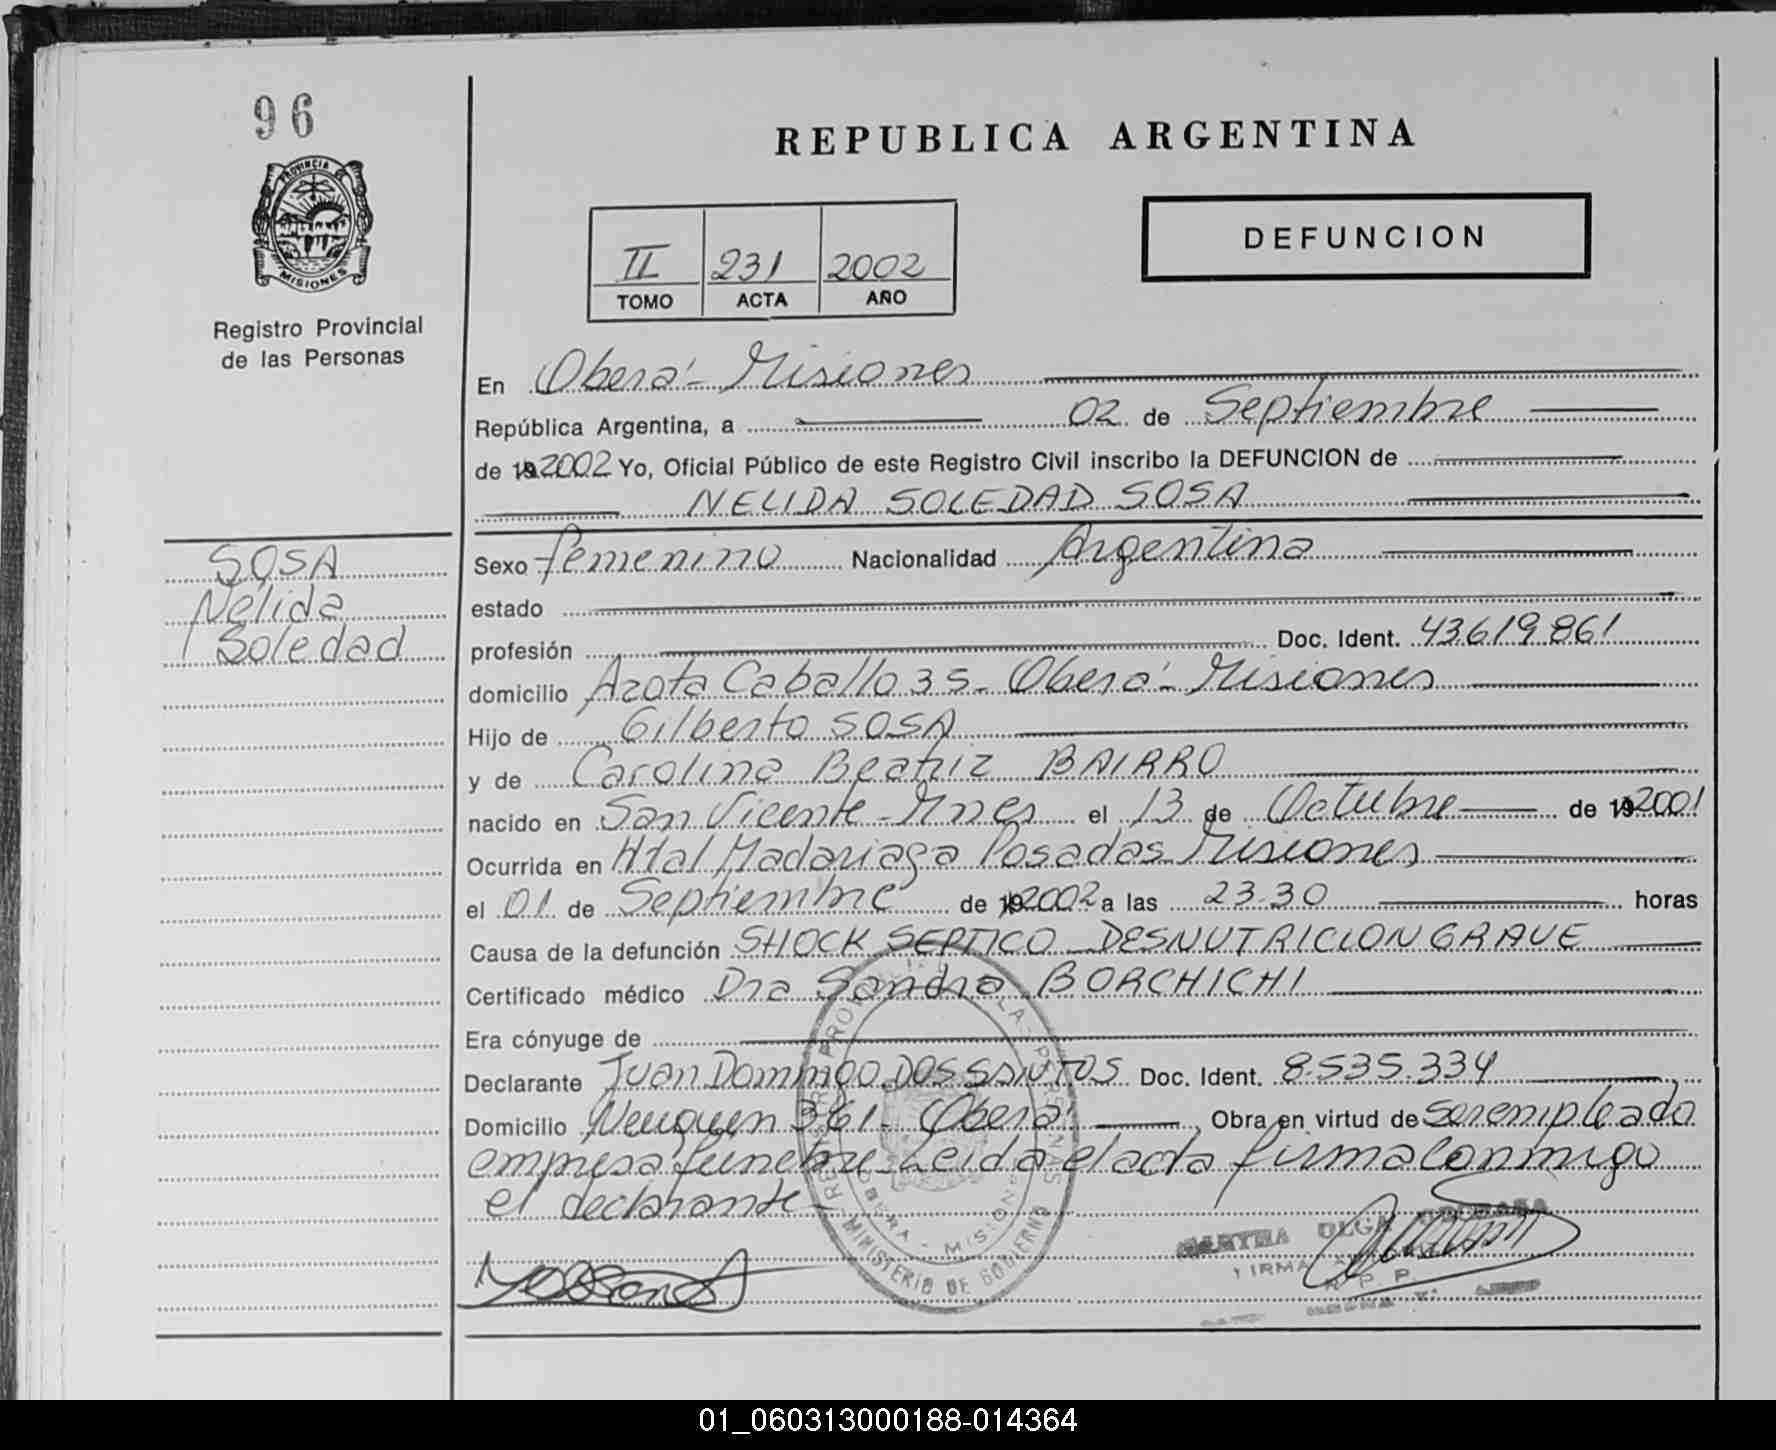 96
PROVINCIA DE
MISIONES
Registro Provincial
de las Personas
REPUBLICA ARGENTINA
II 231 2002
TOMO ACTA AÑO
DEFUNCION
En Oberá - Misiones
República Argentina, a 02 de Septiembre
de 19 2002 Yo, Oficial Público de este Registro Civil inscribo la DEFUNCION de
NELIDA SOLEDAD SOSA
SOSA
Nélida
Soledad
Sexo femenino Nacionalidad Argentina
estado
profesión Doc. Ident. 43.619.861
domicilio Azota Caballo 35 - Oberá - Misiones
Hijo de Gilberto SOSA
y de Carolina Beatriz BAIRRO
nacido en San Vicente - Mnes el 13 de Octubre de 19 2001
Ocurrida en Htal Madariaga Posadas Misiones
el 01 de Septiembre de 19 2002 a las 23.30 horas
Causa de la defunción SHOCK SEPTICO - DESNUTRICION GRAVE
Certificado médico Dra Sandra BORCHICHI
Era cónyuge de
Declarante Juan Domingo DOS SANTOS Doc. Ident. 8.535.334
Domicilio Neuquen 361 - Oberá, Obra en virtud de ser empleado
empresa fúnebre - Leida el acta firma conmigo
el declarante -
REGISTRO PROVINCIAL DE LAS PERSONAS
OBERA - MISIONES
MINISTERIO DE GOBIERNO
MARTHA OLGA
FIRMA
R. P. P.
01_060313000188-014364